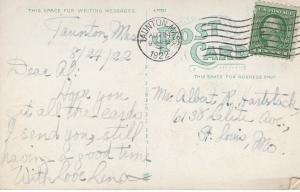 THIS SPACE FOR WRITING MESSAGES.
Taunton, Mass
8/24/22
Dear Al:
Hope you
get all the cards
I send you, still
having a good time
With Love Lena
TAUNTON, MASS.
1922
POST
CARD
THIS SPACE FOR ADDRESS ONLY.
Mr. Albert P.
6138
Ave.,
St. Louis, Mo